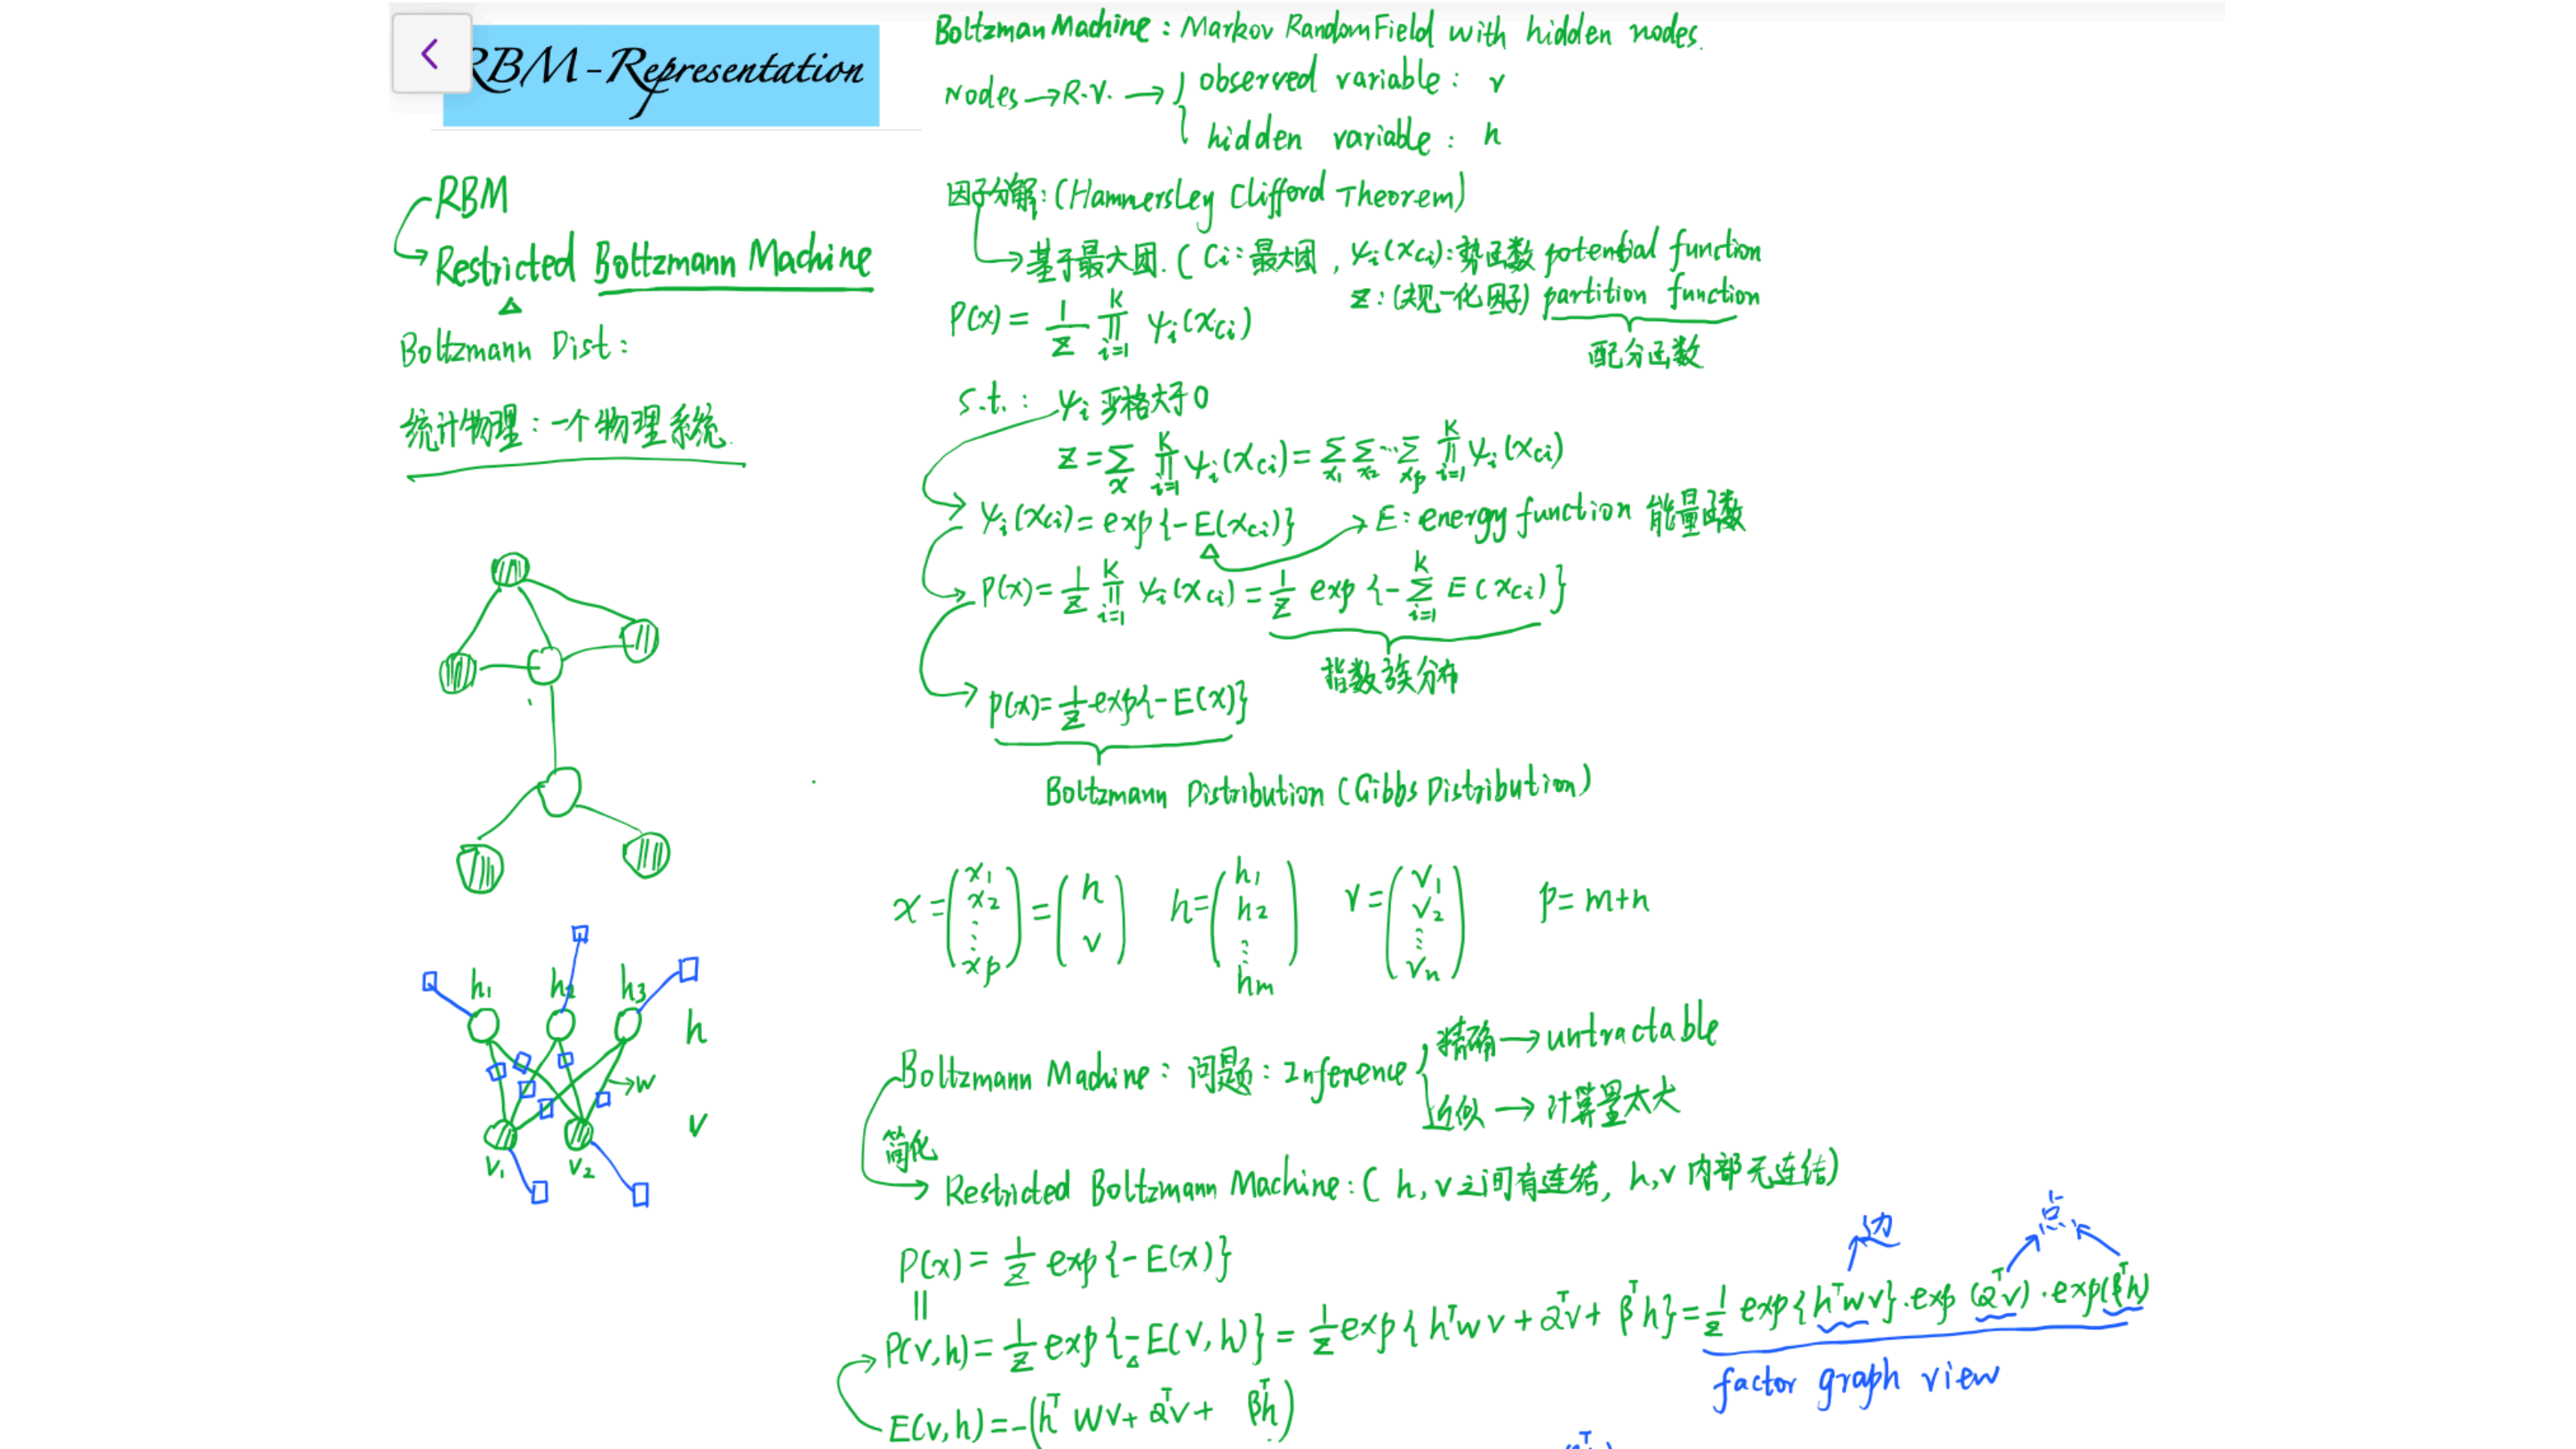 RBM-Representation
RBM
Restricted Boltzmann Machine
Boltzmann Dist:
统计物理: 一个物理系统.
h₁ h₂ h₃
h
w
v
v₁ v₂
Boltzman Machine: Markov Random Field with hidden nodes.
Nodes → R.V. → { observed variable: v
hidden variable: h
因子分解: (Hammersley Clifford Theorem)
→ 基于最大团. ( Ci: 最大团, ψᵢ(x_{Ci}): 势函数 potential function
Z: (规一化因子) partition function
配分函数
P(x) = 1/Z ∏_{i=1}^{K} ψᵢ(x_{Ci})
s.t.: ψᵢ 严格大于0
Z = ∑_x ∏_{i=1}^{K} ψᵢ(x_{Ci}) = ∑_{x₁} ∑_{x₂} ⋯ ∑_{x_p} ∏_{i=1}^{K} ψᵢ(x_{Ci})
ψᵢ(x_{Ci}) = exp{-E(x_{Ci})} → E: energy function 能量函数
P(x) = 1/Z ∏_{i=1}^{K} ψᵢ(x_{Ci}) = 1/Z exp{-∑_{i=1}^{K} E(x_{Ci})}
指数族分布
p(x) = 1/Z exp{-E(x)}
Boltzmann Distribution (Gibbs Distribution)
x = (x₁ x₂ ⋮ x_p) = (h v) h = (h₁ h₂ ⋮ h_m) v = (v₁ v₂ ⋮ v_n) p = m+n
Boltzmann Machine: 问题: Inference { 精确 → untractable
近似 → 计算量太大
简化
→ Restricted Boltzmann Machine: ( h, v 之间有连结, h,v 内部无连结)
边 点
P(x) = 1/Z exp{-E(x)}
||
P(v,h) = 1/Z exp{-E(v,h)} = 1/Z exp{hᵀwv + αᵀv + βᵀh} = 1/Z exp{hᵀwv}·exp(αᵀv)·exp(βᵀh)
factor graph view
E(v,h) = -(hᵀWv + αᵀv + βᵀh)